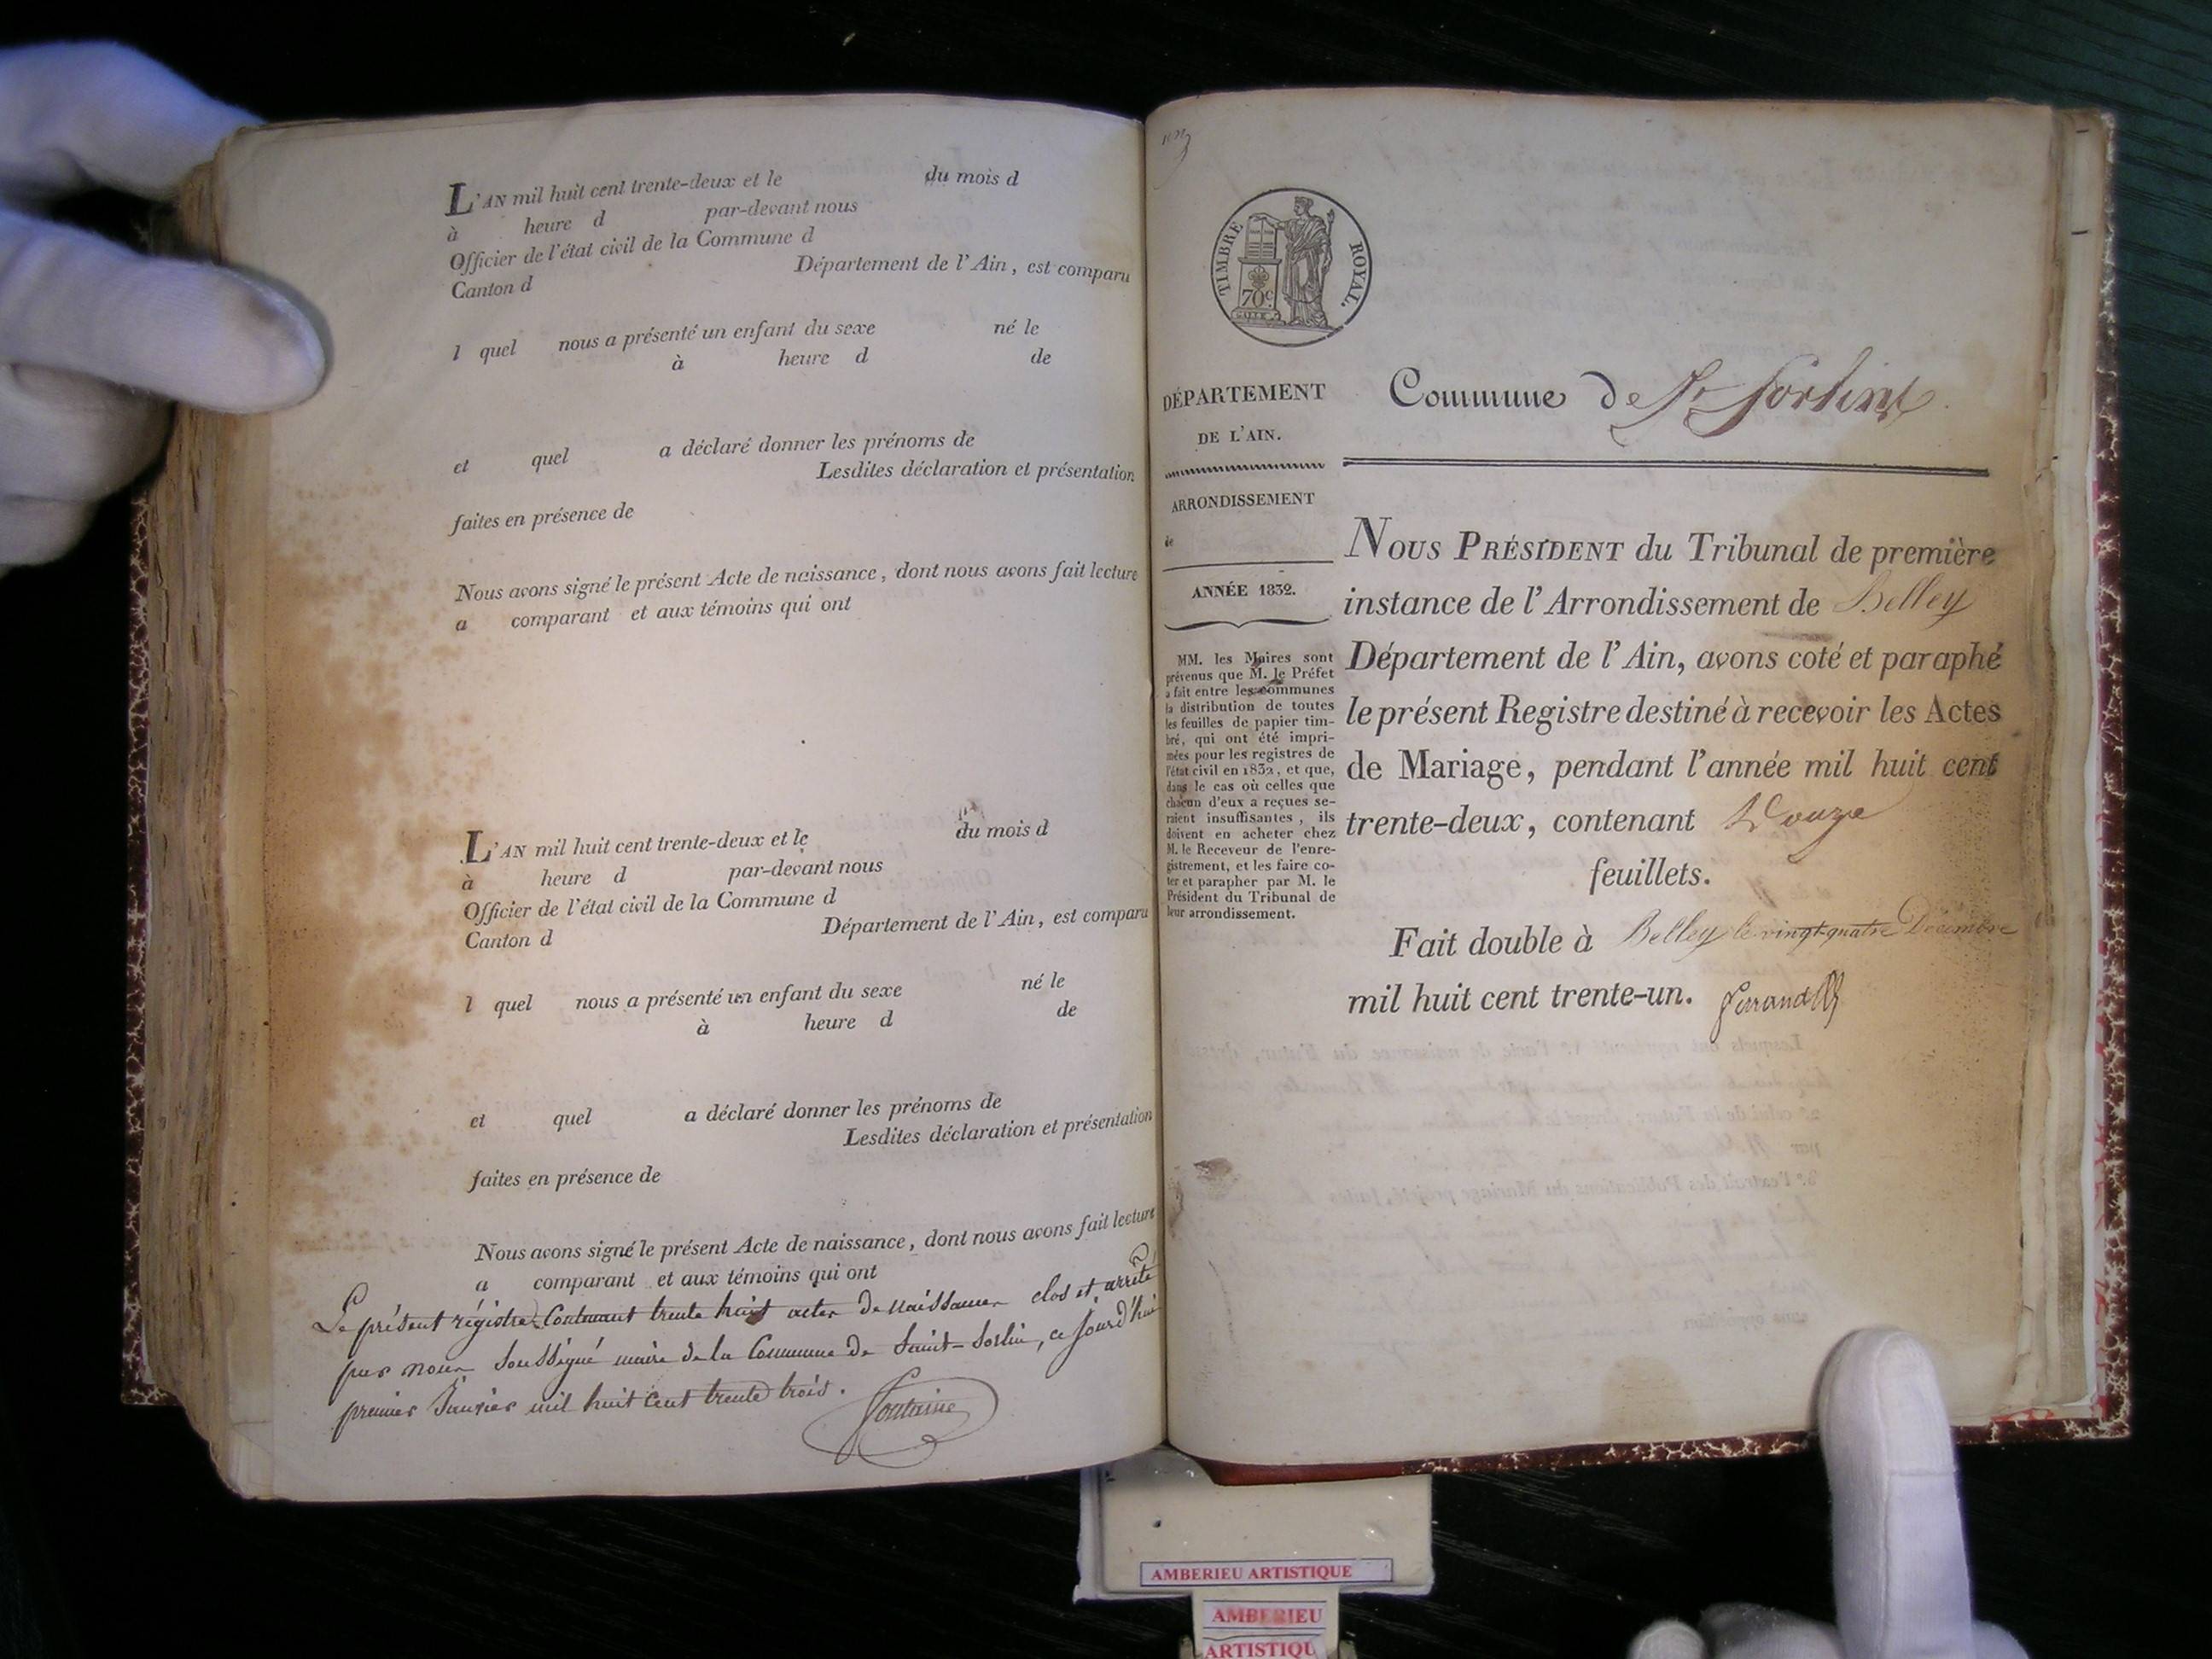 L'AN mil huit cent trente-deux et le du mois d
à heure d par-devant nous
Officier de l'état civil de la Commune d
Canton d Département de l'Ain, est comparu
l quel nous a présenté un enfant du sexe né le
à heure d de
et quel a déclaré donner les prénoms de
Lesdites déclaration et présentation
faites en présence de
Nous avons signé le présent Acte de naissance, dont nous avons fait lecture
a comparant et aux témoins qui ont
L'AN mil huit cent trente-deux et le du mois d
à heure d par-devant nous
Officier de l'état civil de la Commune d
Canton d Département de l'Ain, est comparu
l quel nous a présenté un enfant du sexe né le
à heure d de
et quel a déclaré donner les prénoms de
Lesdites déclaration et présentation
faites en présence de
Nous avons signé le présent Acte de naissance, dont nous avons fait lecture
a comparant et aux témoins qui ont
Le présent régistre Contenant trente huit actes de naissances clos et arrêté
par nous Soussigné maire de la Commune de Saint-Sorlin, ce jourd'hui
premier Janvier mil huit cent trente trois.
Fontaine
TIMBRE ROYAL.
70c
DÉPARTEMENT
DE L'AIN.
ARRONDISSEMENT
de
ANNÉE 1832.
MM. les Maires sont
prévenus que M. le Préfet
a fait entre les communes
la distribution de toutes
les feuilles de papier tim-
bré, qui ont été impri-
mées pour les registres de
l'état civil en 1832, et que,
dans le cas où celles que
chacun d'eux a reçues se-
raient insuffisantes, ils
doivent en acheter chez
M. le Receveur de l'enre-
gistrement, et les faire co-
ter et parapher par M. le
Président du Tribunal de
leur arrondissement.
Commune de St Sorlin
NOUS PRÉSIDENT du Tribunal de première
instance de l'Arrondissement de Belley
Département de l'Ain, avons coté et paraphé
le présent Registre destiné à recevoir les Actes
de Mariage, pendant l'année mil huit cent
trente-deux, contenant Douze
feuillets.
Fait double à Belley le vingt-quatre Décembre
mil huit cent trente-un. Ferrand
AMBERIEU ARTISTIQUE
AMBERIEU
ARTISTIQU